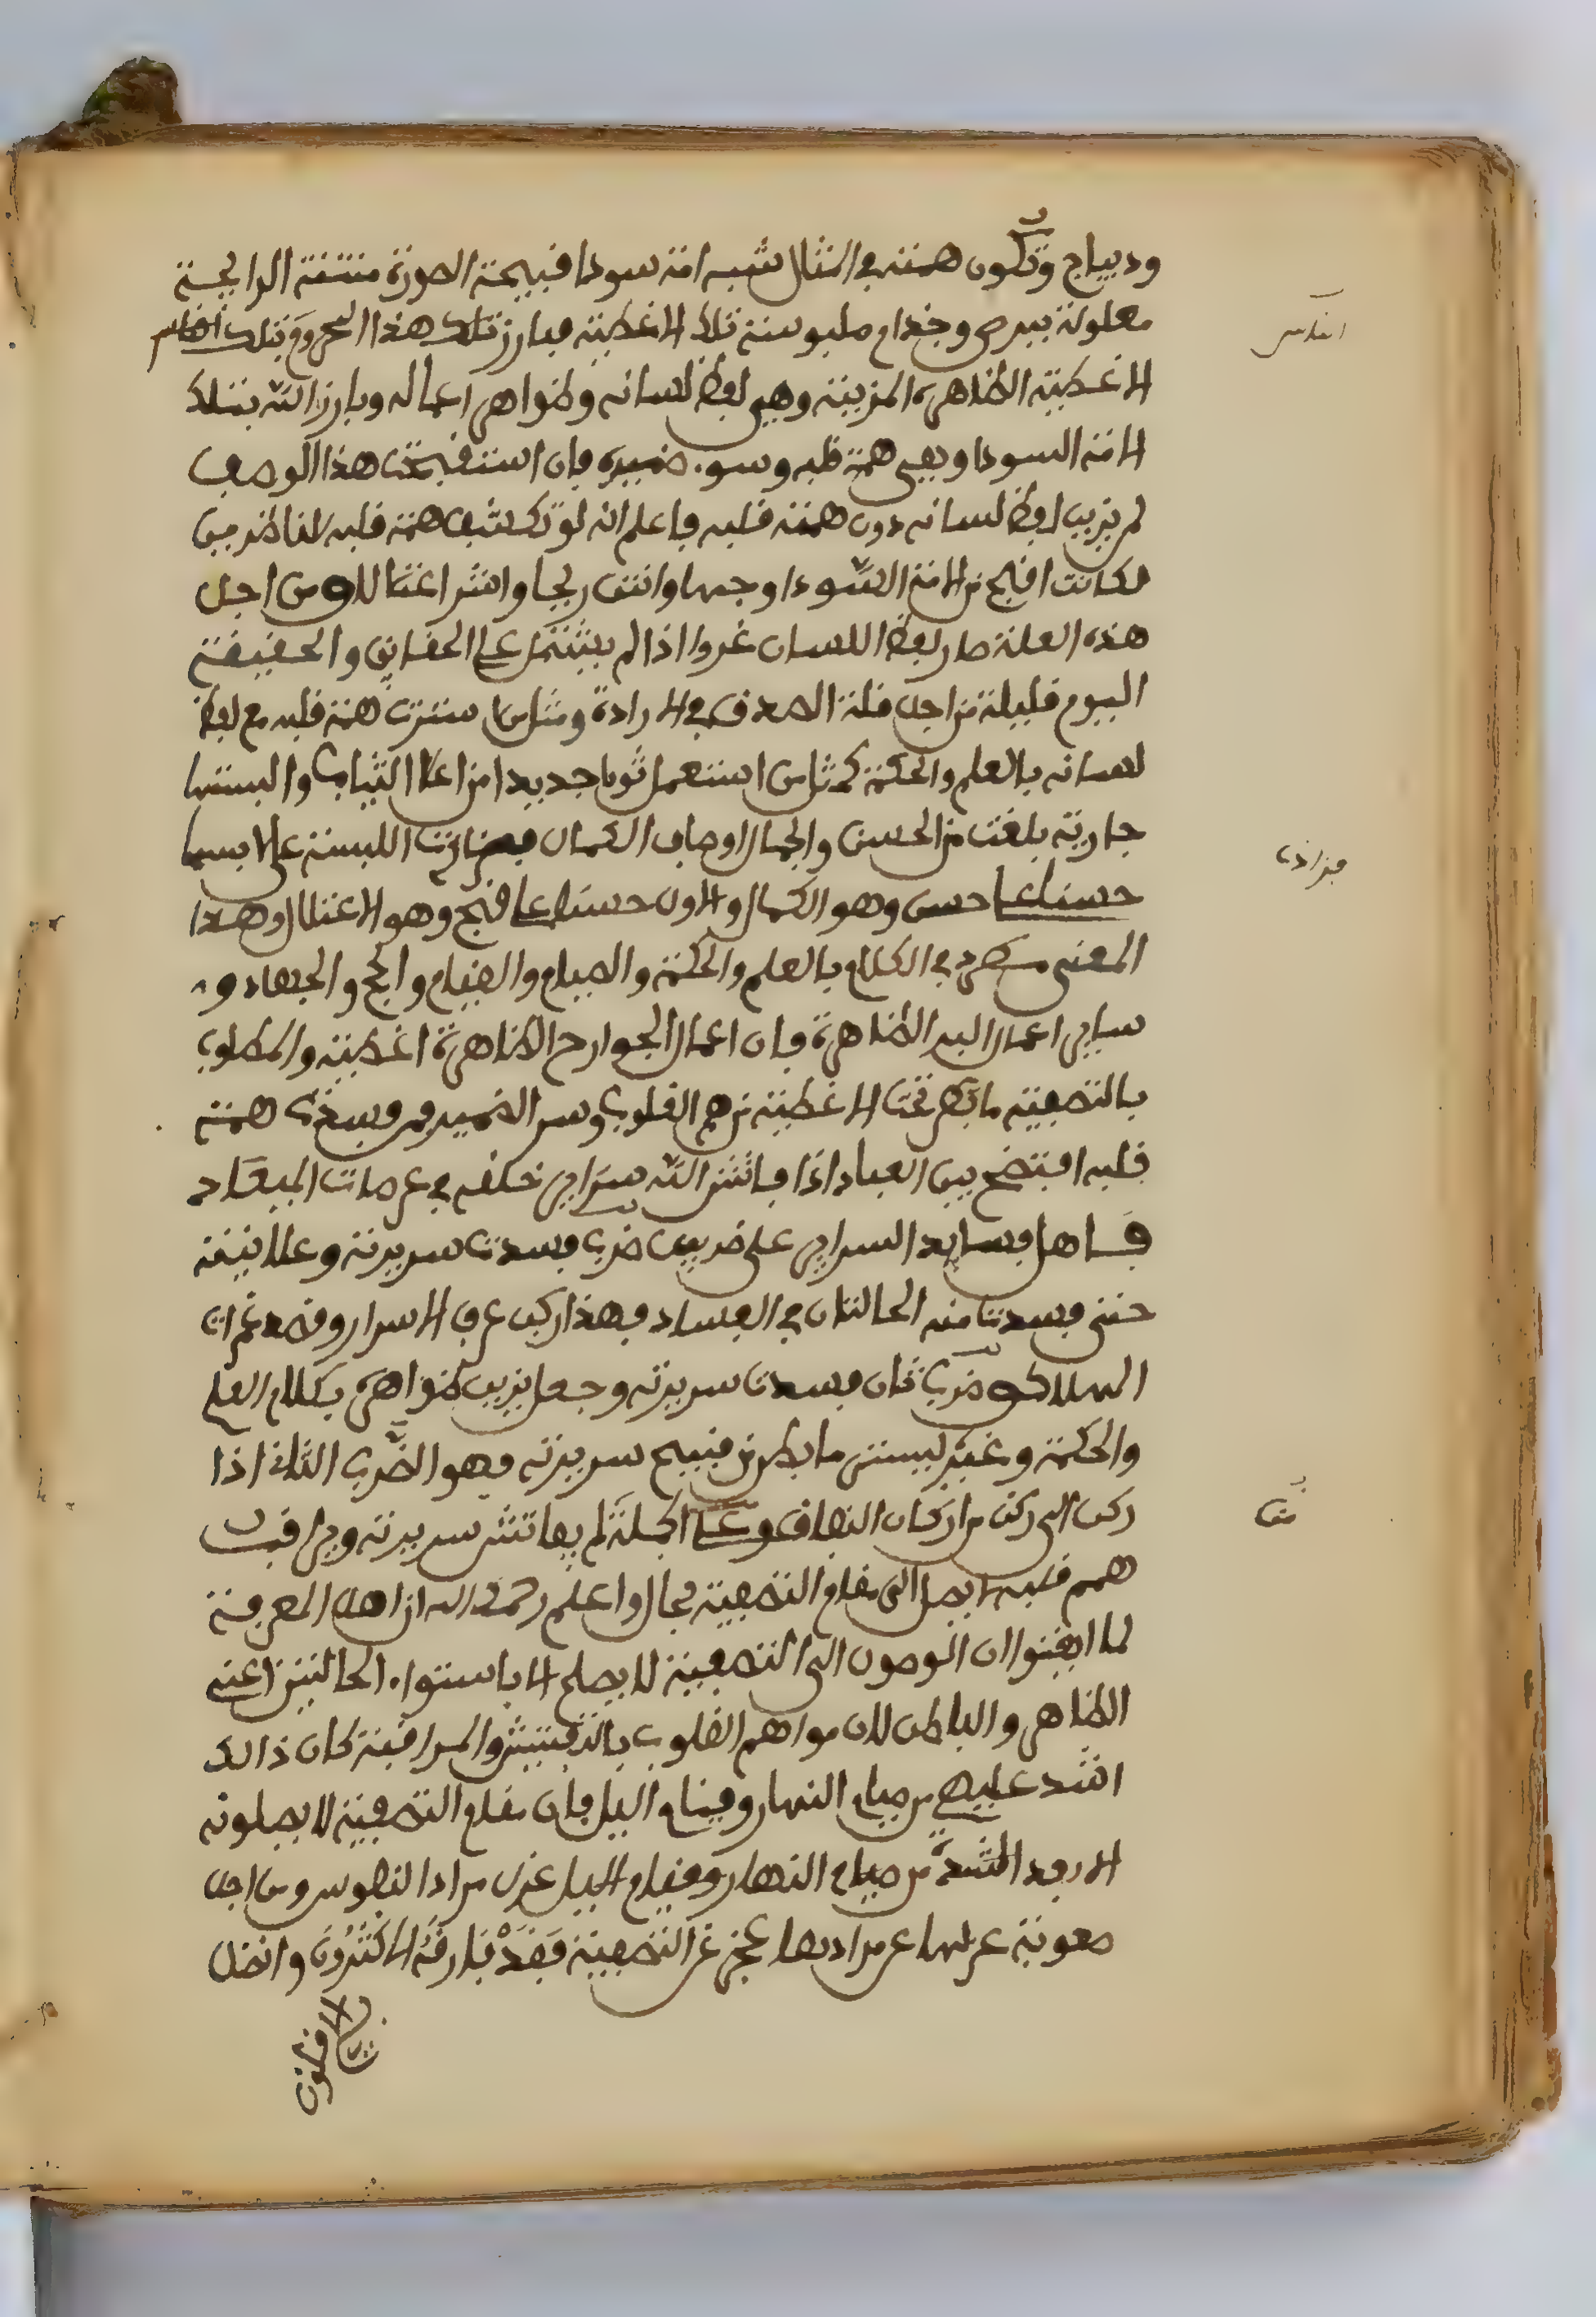 وديباج وتكون همته في المثال شبه امة سودا قبيحة الصورة منتنة الرايحة
معلولة ببرص وجذام ملبوسة تلك الاغطية فبارز تلك هذا وتلك
الاغطية الظاهرة المزينة وهي لفظ لسانه وظواهر اعماله وبارز الله بتلك
الامة السودا وهي همة قلبه وسو ضميره فان استقبحت هذا الوصف
لم يزين لفظ لسانه دون همته قلبه فاعلم انه لو تكشف همة قلبه للناظرين
لكانت اقبح من الامة السّودا وجها وانتن ريحا واشر اعتلالا ومن اجل
هذه العلة صار لفظ اللسان غروا اذا لم يشتمل على الحقايق والحقيقة
اليوم قليلة من اجل قلة الصدق في الارادة ومثل من استترت همة قلبه مع لفظ
لسانه بالعلم والحكمة كمثل من استعمل ثوبا جديدا من اعلا الثياب والبستها
جارية بلغت من الحسن والجمال اوصاف الكمال فصارت اللبسة على لابسها
حسنا على حسن وهو الكمال والاول حسنا على قبح وهو الاعتلال وهذا
المعنى مطرد في الكلام بالعلم والحكمة والصيام والقيام والحج والجهاد و
ساير اعمال البر الظاهرة فان اعمال الجوارح الظاهرة اغطية والمطلوب
بالتصفية ما بطن تحت الاغطية من هم القلوب وسر الضمير فمن فسدت همته
قلبه افتضح بين العباد اذا فاتش الله سراير خلقه في عرصات الميعاد
فاهل فسايد السراير على ضربين ضرب فسدت سريرته وعلانيته
حتى فسدت منه الحالتان في الفساد فهذا ركب غرق الاسرار وقصد غمرات
الهلاك وضرب ثان فسدت سريرته وجعل يزين ظواهره بكلام العلم
والحكمة وغيره ليستر ما بطن من قبيح سريرته وهو الضرب الثاني اذا
ركن الى ركن من اركان النفاق وعلى الجملة لم يفاتش سريرته ويراقب
همم قلبه لا يصل الى مقام التصفية بحال واعلم رحمك الله ان اهل المعرفة
لما ايقنوا ان الوصول الى التصفية لا يصلح الا باستوا الحالتين اعني
الظاهر والباطن للان مواهم القلوب بالتفتيش والمراقبة كان ذالك
اشد عليهم من صيام النهار وقيام اليل فان مقام التصفية لا يصلونه
الا بعد الشدة من صيام النهار وقيام اليل عزل مراد النفوس ومن اجل
صعوبة عزلها عن مرادها عجز عن التصفية فقد فارقه الاكثرون وانفصل